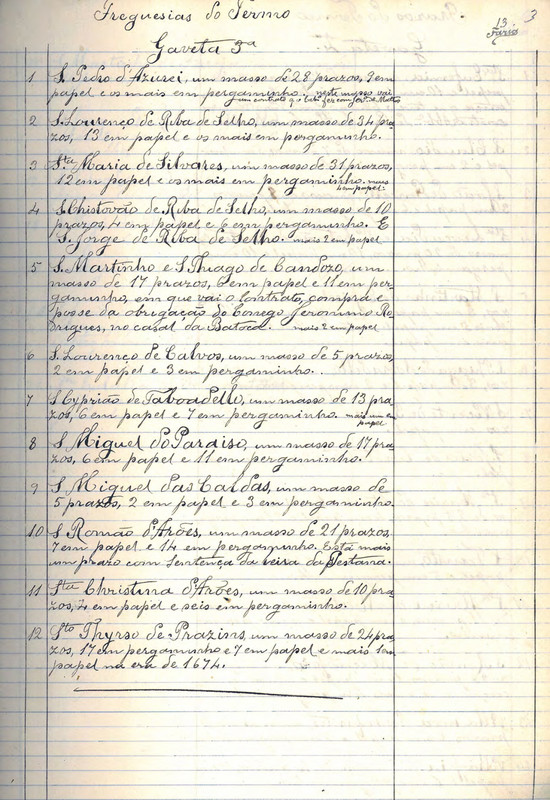 Freguesias do Termo
13
Faria
3
Gaveta 3ª
1 S. Pedro d'Azurei, um masso de 28 prazos, 9 em
papel e os mais em pergaminho. neste masso vai
um contrato q̃ fez com
2 S. Lourenço de Riba de Selho, um masso de 34 pra
zos, 13 em papel e os mais em pergaminho.
3 Sta Maria de Silvares, um masso de 31 prazos,
12 em papel e os mais em pergaminho. mais
4 em papel.
4 S. Christovão de Riba de Selho, um masso de 10
prazos, 4 em papel e 6 em pergaminho. E
S. Jorge de Riba de Selho. mais 2 em papel
5 S. Martinho e S. Thiago de Candozo, um
masso de 17 prazos, 6 em papel e 11 em per-
gaminho, em que vai o contrato, compra e
posse da obrigação do Conego Jeronimo Ro
drigues, no casal da Batoca. mais 2 em papel
6 S. Lourenço de Calvos, um masso de 5 prazos,
2 em papel e 3 em pergaminho.
7 S. Cyprião de Taboadello, um masso de 13 pra
zos, 6 em papel e 7 em pergaminho. mais um em
papel
8 S. Miguel do Paraiso, um masso de 17 pra
zos, 6 em papel e 11 em pergaminho.
9 S. Miguel das Caldas, um masso de
5 prazos, 2 em papel e 3 em pergaminho.
10 S. Romão d'Arões, um masso de 21 prazos,
7 em papel e 14 em pergaminho. Está mais
um prazo com Sentença da leira da Pestana.
11 Sta Christina d'Arões, um masso de 10 pra
zos, 4 em papel e seis em pergaminho.
12 Sto Thyrso de Prazins, um masso de 24 pra
zos, 17 em pergaminho e 7 em papel e mais 1 em
papel na era de 1674.